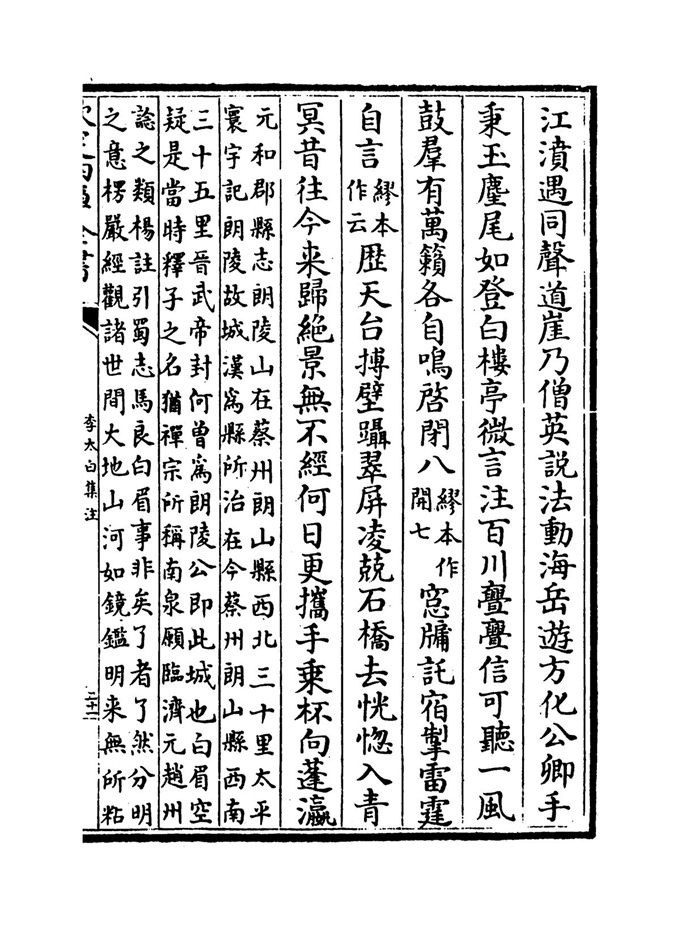 江濆遇同聲道崖乃僧英説法動海岳遊方化公卿手
秉玉麈尾如登白樓亭微言注百川亹亹信可聽一風
鼓羣有萬籟各自鳴啓閉八
繆本作
開七
窓牖託宿掣雷霆
自言
繆本
作云
歴天台搏壁躡翠屏凌兢石橋去恍惚入青
冥昔往今来歸絶景無不經何日更攜手乗杯向蓬瀛
元和郡縣志朗陵山在蔡州朗山縣西北三十里太平
寰宇記朗陵故城漢為縣所治在今蔡州朗山縣西南
三十五里晉武帝封何曽為朗陵公即此城也白眉空
疑是當時釋子之名猶禪宗所稱南泉願臨濟元趙州
諗之類楊註引蜀志馬良白眉事非矣了者了然分明
之意楞嚴經觀諸世間大地山河如鏡鑑明来無所粘
李太白集注
二十二